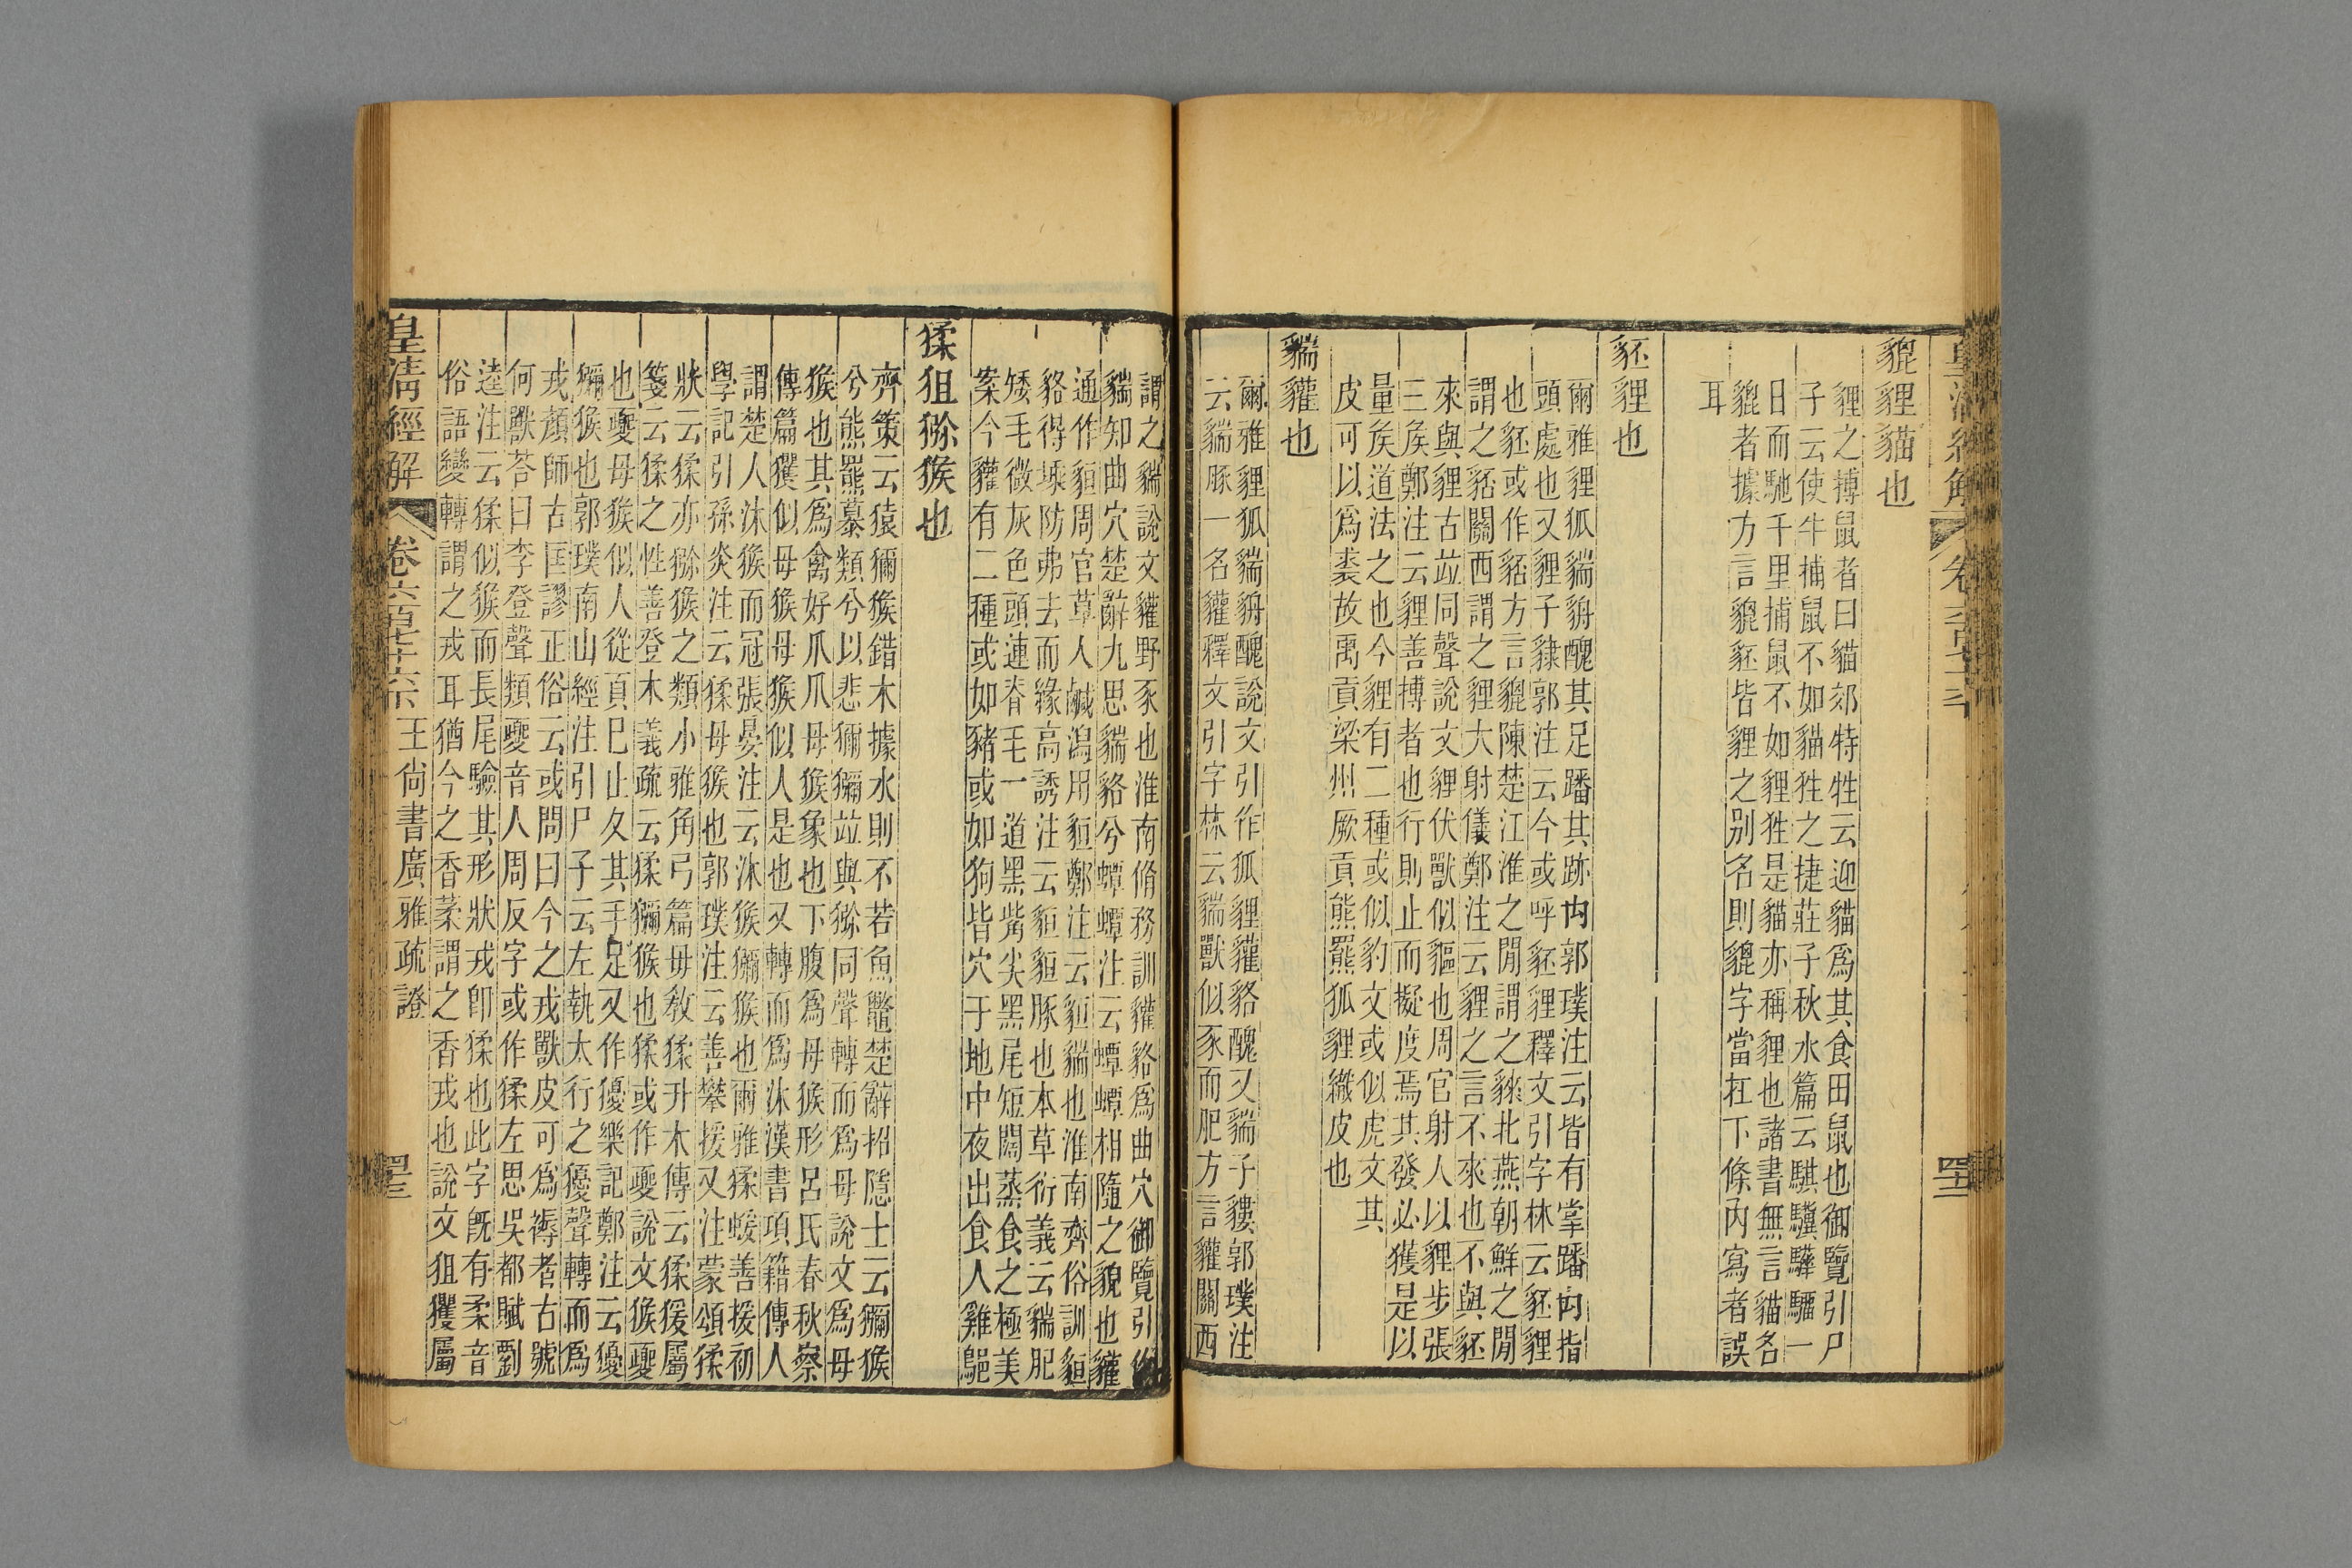 貔貍貓也
貍之搏鼠者曰貓郊特牲云迎貓爲其食田鼠也御覽引尸
子云使牛捕鼠不如貓狌之捷莊子秋水篇云騏驥驊騮一
日而馳千里捕鼠不如貍狌是貓亦稱貍也諸書無言貓名
貔者據方言貔豾皆貍之別名則貔字當在下條內寫者誤
耳
豾貍也
爾雅貍狐貒貈醜其足蹯其跡内郭璞注云皆有掌蹯内指
頭處也又貍子䝘郭注云今或呼豾貍釋文引字林云豾貍
也豾或作䝏方言貔陳楚江淮之閒謂之䅘北燕朝鮮之閒
謂之䝏關西謂之貍大射儀鄭注云貍之言不來也不與豾
來與貍古竝同聲說文貍伏獸似貙也周官射人以貍步張
三矦鄭注云貍善搏者也行則止而擬度焉其發必獲是以
量矦道法之也今貍有二種或似豹文或似虎文其
皮可以爲裘故禹貢梁州厥貢熊羆狐貍織皮也
貒貛也
爾雅貍狐貒貈醜說文引作狐貍貛貉醜又貒子貗郭璞注
云貒豚一名貛釋文引字林云貒獸似豕而肥方言貛關西
謂之貒說文貛野豕也淮南脩務訓貛貉爲曲穴御覽引作
貒知曲穴楚辭九思貒貉兮蟫蟫注云蟫蟫相隨之貌也貛
通作貆周官草人鹹潟用貆鄭注云貆貒也淮南齊俗訓貆
貉得埵防弗去而緣高誘注云貆貆豚也本草衍義云貒肥
矮毛微灰色頭連脊毛一道黑觜尖黑尾短闊蒸食之極美
案今貛有二種或如豬或如狗皆穴于地中夜出食人雞鼆
猱狙猕猴也
齊策云猿獼猴錯木據水則不若魚鼈楚辭招隱士云獼猴
兮熊羆慕類兮以悲獼獮竝與猕同聲轉而爲母說文爲母
猴也其爲禽好爪爪母猴象也下腹爲母猴形呂氏春秋察
傳篇玃似母猴母猴似人是也又轉而爲沐漢書項籍傳人
謂楚人沐猴而冠張晏注云沐猴獼猴也爾雅猱蝯善援初
學記引孫炎注云猱母猴也郭璞注云善攀援又注蒙頌猱
狀云猱亦猕猴之類小雅角弓篇毋敎猱升木傳云猱猨屬
箋云猱之性善登木義疏云猱獼猴也猱或作夒說文猴夒
也夒母猴似人從頁巳止夂其手足又作獶樂記鄭注云獶
獼猴也郭璞南山經注引尸子云左執太行之獶聲轉而爲
戎顏師古匡謬正俗云或問曰今之戎獸皮可爲褥者古號
何獸荅曰李登聲類夒音人周反字或作猱左思吳都賦劉
逵注云猱似猴而長尾驗其形狀戎卽猱也此字旣有柔音
俗語變轉謂之戎耳猶今之香葇謂之香戎也說文狙玃屬
皇淸經解 卷六百七十六 王尙書廣雅疏證